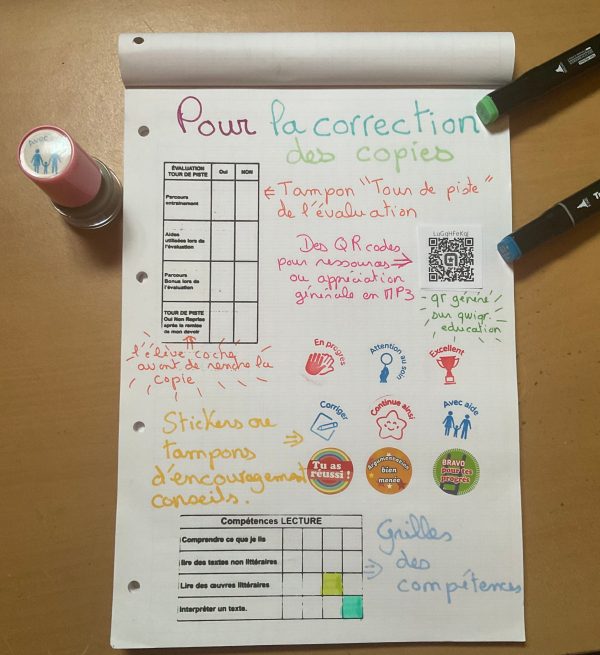 Pour la correction
des copies
ÉVALUATION
TOUR DE PISTE
Oui
NON
Parcours
entrainement
Aides
utilisées lors de
l'évaluation
Parcours
Bonus lors de
l'évaluation
TOUR DE PISTE
Oui Non Reprise
après la remise
de mon devoir
Tampon "Tour de piste"
de l'évaluation
l'élève coche
avant de rendre la
copie
Des QR codes
pour ressources
ou appréciation
générale en MP3
LaGqHFeKqj
qr généré
sur qwiqr.
education
Avec
En progrès
Attention au soin
Excellent
Corriger
Continue ainsi
Avec aide
Tu as
réussi !
Argumentation
bien
menée
BRAVO
pour tes
progrès
Stickers ou
tampons
d'encouragement
conseils.
Compétences LECTURE
Comprendre ce que je lis
lire des textes non littéraires
Lire des œuvres littéraires
Interpréter un texte.
Grilles
des
compétences